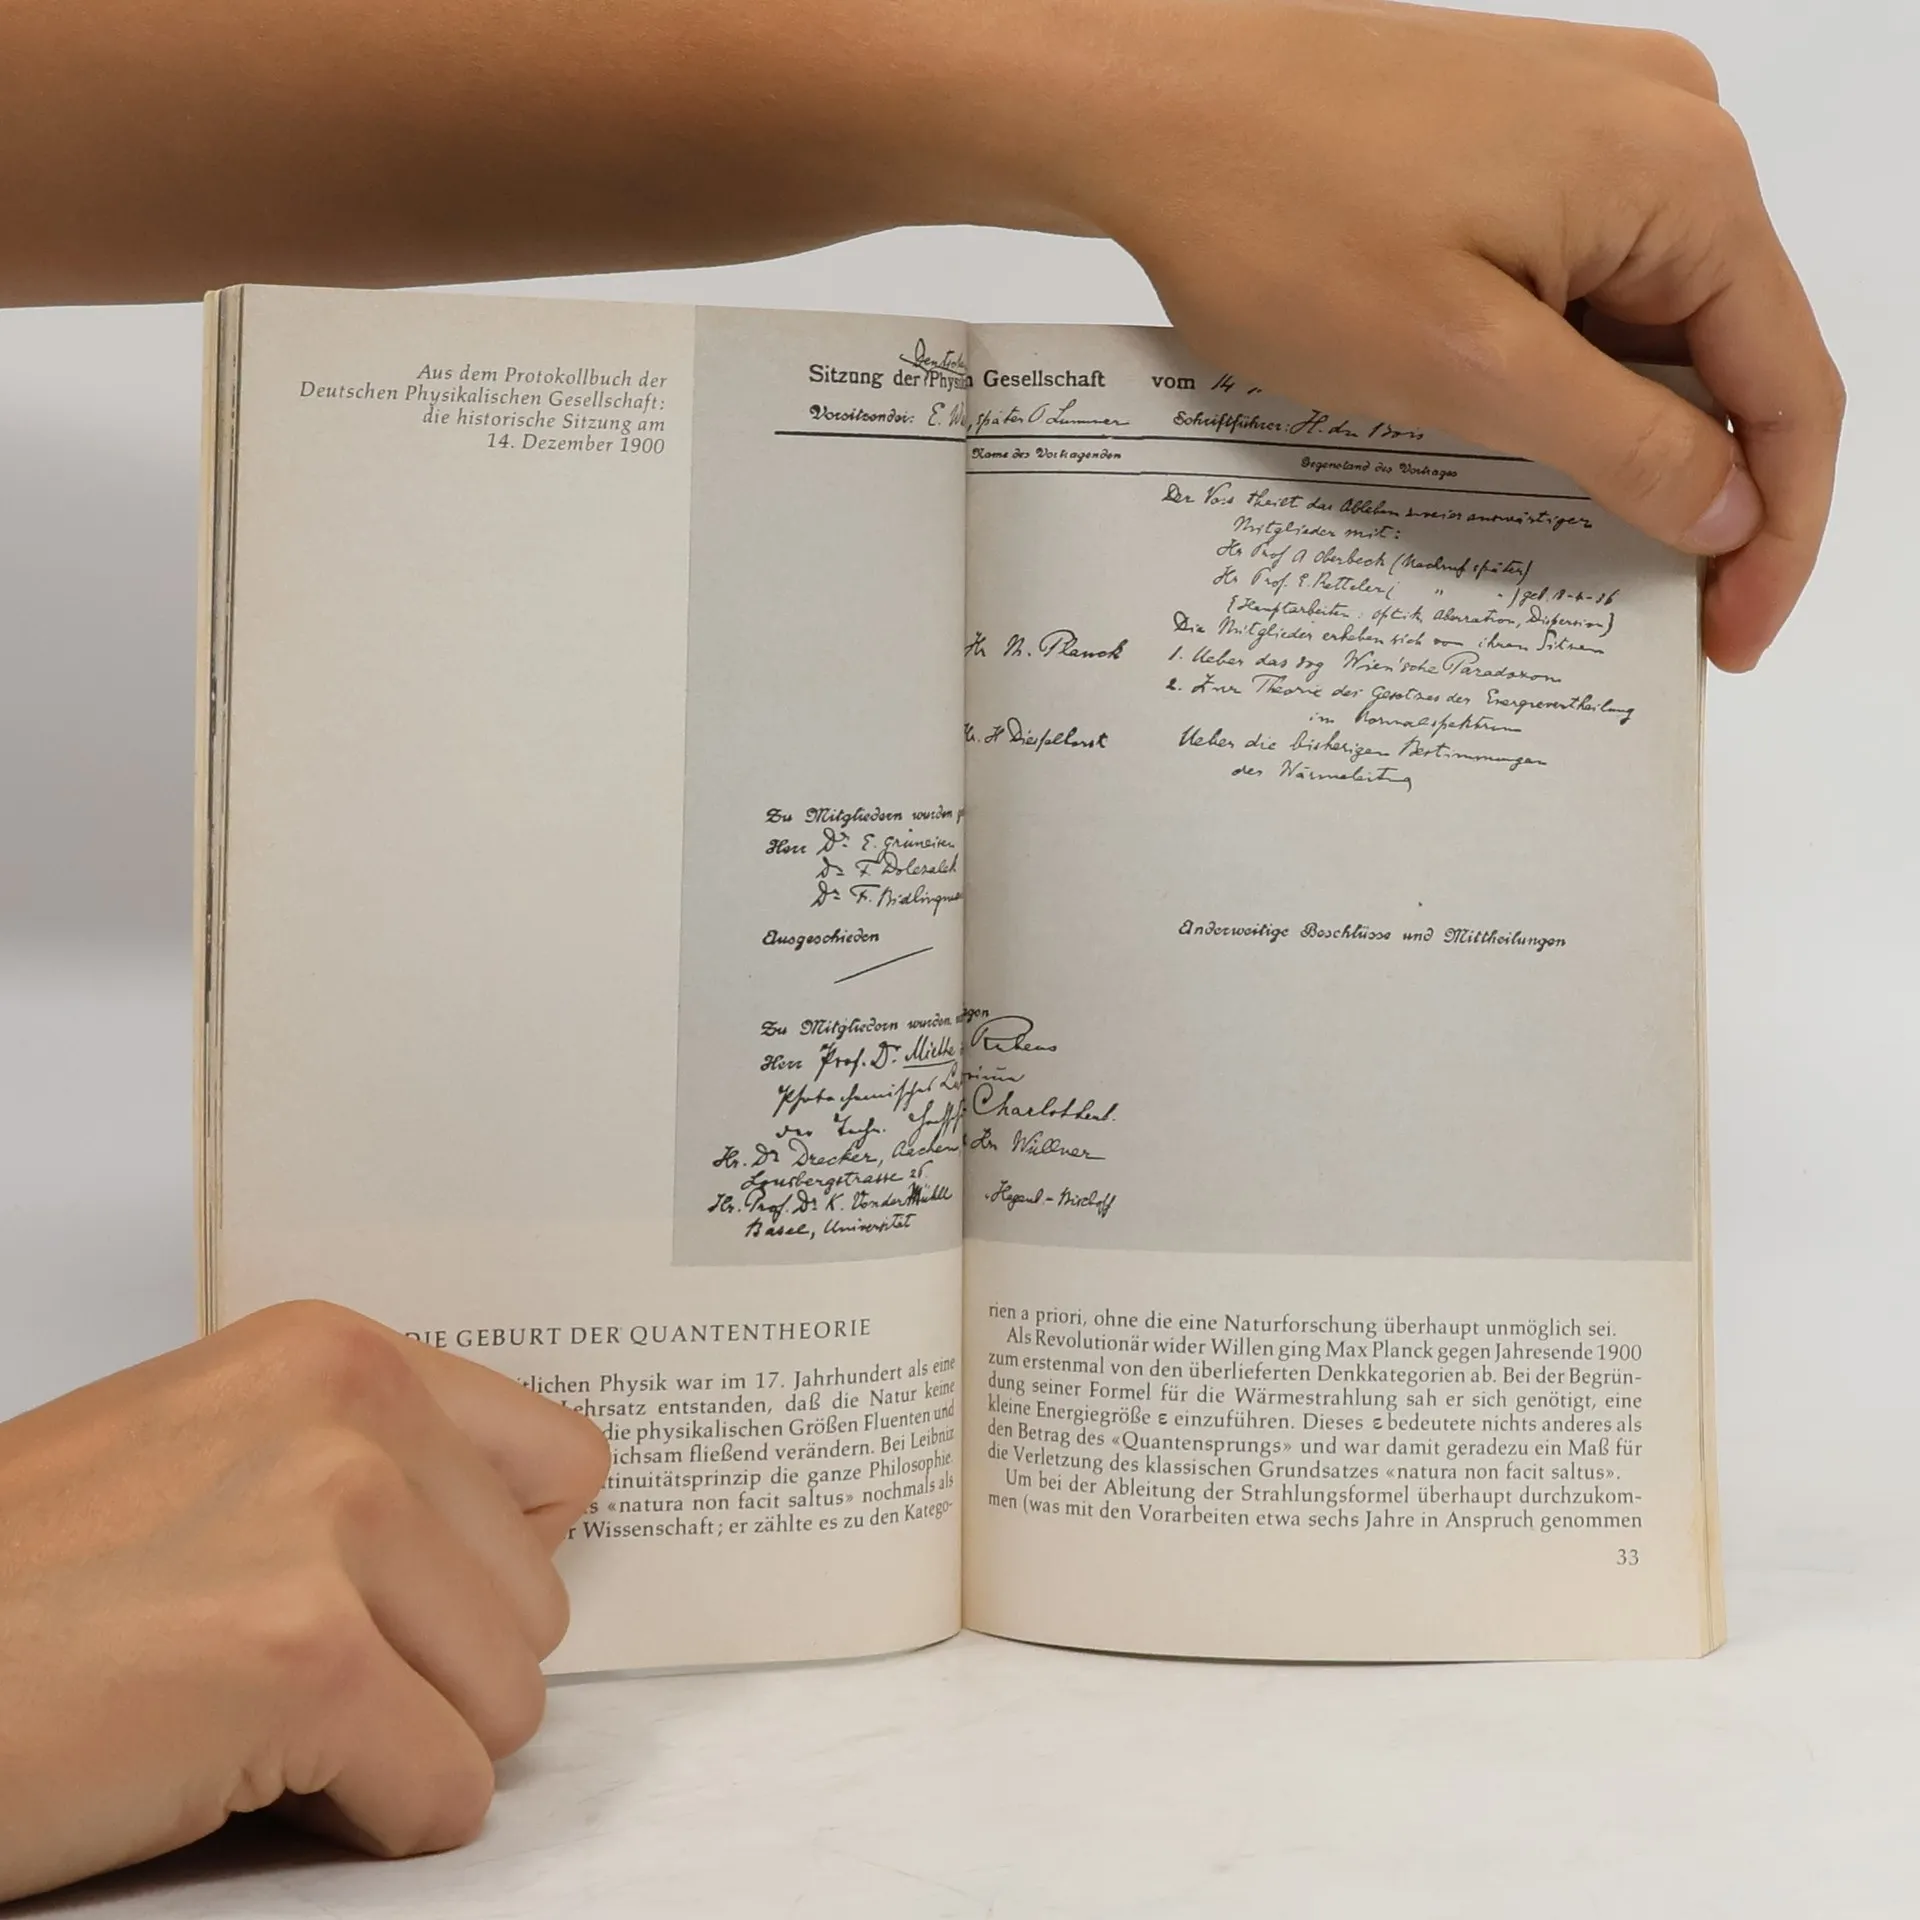 Aus dem Protokollbuch der
Deutschen Physikalischen Gesellschaft:
die historische Sitzung am
14. Dezember 1900
Deutsche
Sitzung der Physik
Vorsitzender: E.
Zu Mitgliedern wurden
Herr Dr. E. Grüneisen
Dr F. Dolezalek
Dr F.
Ausgeschieden
Zu Mitgliedern wurden
Herr Prof. Dr. Miethe
Photochemisches
der Techn.
Hr. Dr Drecker, Aachen,
Lousbergstrasse 26.
Hr. Prof. Dr K. VonderMühll
Basel, Universität
DIE GEBURT DER QUANTENTHEORIE
tlichen Physik war im 17. Jahrhundert als eine
Lehrsatz entstanden, daß die Natur keine
die physikalischen Größen Fluenten und
ichsam fließend verändern. Bei Leibniz
tinuitätsprinzip die ganze Philosophie.
s «natura non facit saltus» nochmals als
r Wissenschaft; er zählte es zu den Katego-
Gesellschaft vom 14
, später O Lummer Schriftführer: H. du Bois
Name des Vortragenden Gegenstand des Vortrages
Der Vors theilt das Ableben zweier auswärtiger
Mitglieder mit:
Hr Prof A Oberbeck (Nachruf später)
Hr Prof. E. Ketteler ( " " )
(Hauptarbeiten: optik, Aberration, Dispersion)
Die Mitglieder erheben sich von ihren Sitzen
Hr M. Planck 1. Ueber das sog Wien'sche Paradoxon
2. Zur Theorie des Gesetzes der Energievertheilung
im Normalspektrum
Hr. H Diesselhorst Ueber die bisherigen Bestimmungen
der Wärmeleitung
Anderweitige Beschlüsse und Mittheilungen
gen
Rubens
Charlottenb.
Hr. Wüllner
Hagenb-Bischoff
rien a priori, ohne die eine Naturforschung überhaupt unmöglich sei.
Als Revolutionär wider Willen ging Max Planck gegen Jahresende 1900
zum erstenmal von den überlieferten Denkkategorien ab. Bei der Begrün-
dung seiner Formel für die Wärmestrahlung sah er sich genötigt, eine
kleine Energiegröße ε einzuführen. Dieses ε bedeutete nichts anderes als
den Betrag des «Quantensprungs» und war damit geradezu ein Maß für
die Verletzung des klassischen Grundsatzes «natura non facit saltus».
Um bei der Ableitung der Strahlungsformel überhaupt durchzukom-
men (was mit den Vorarbeiten etwa sechs Jahre in Anspruch genommen
33